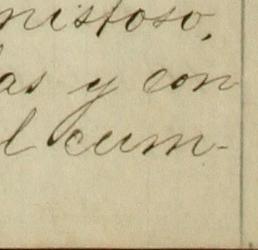 nistoso,
as y con
l cum-